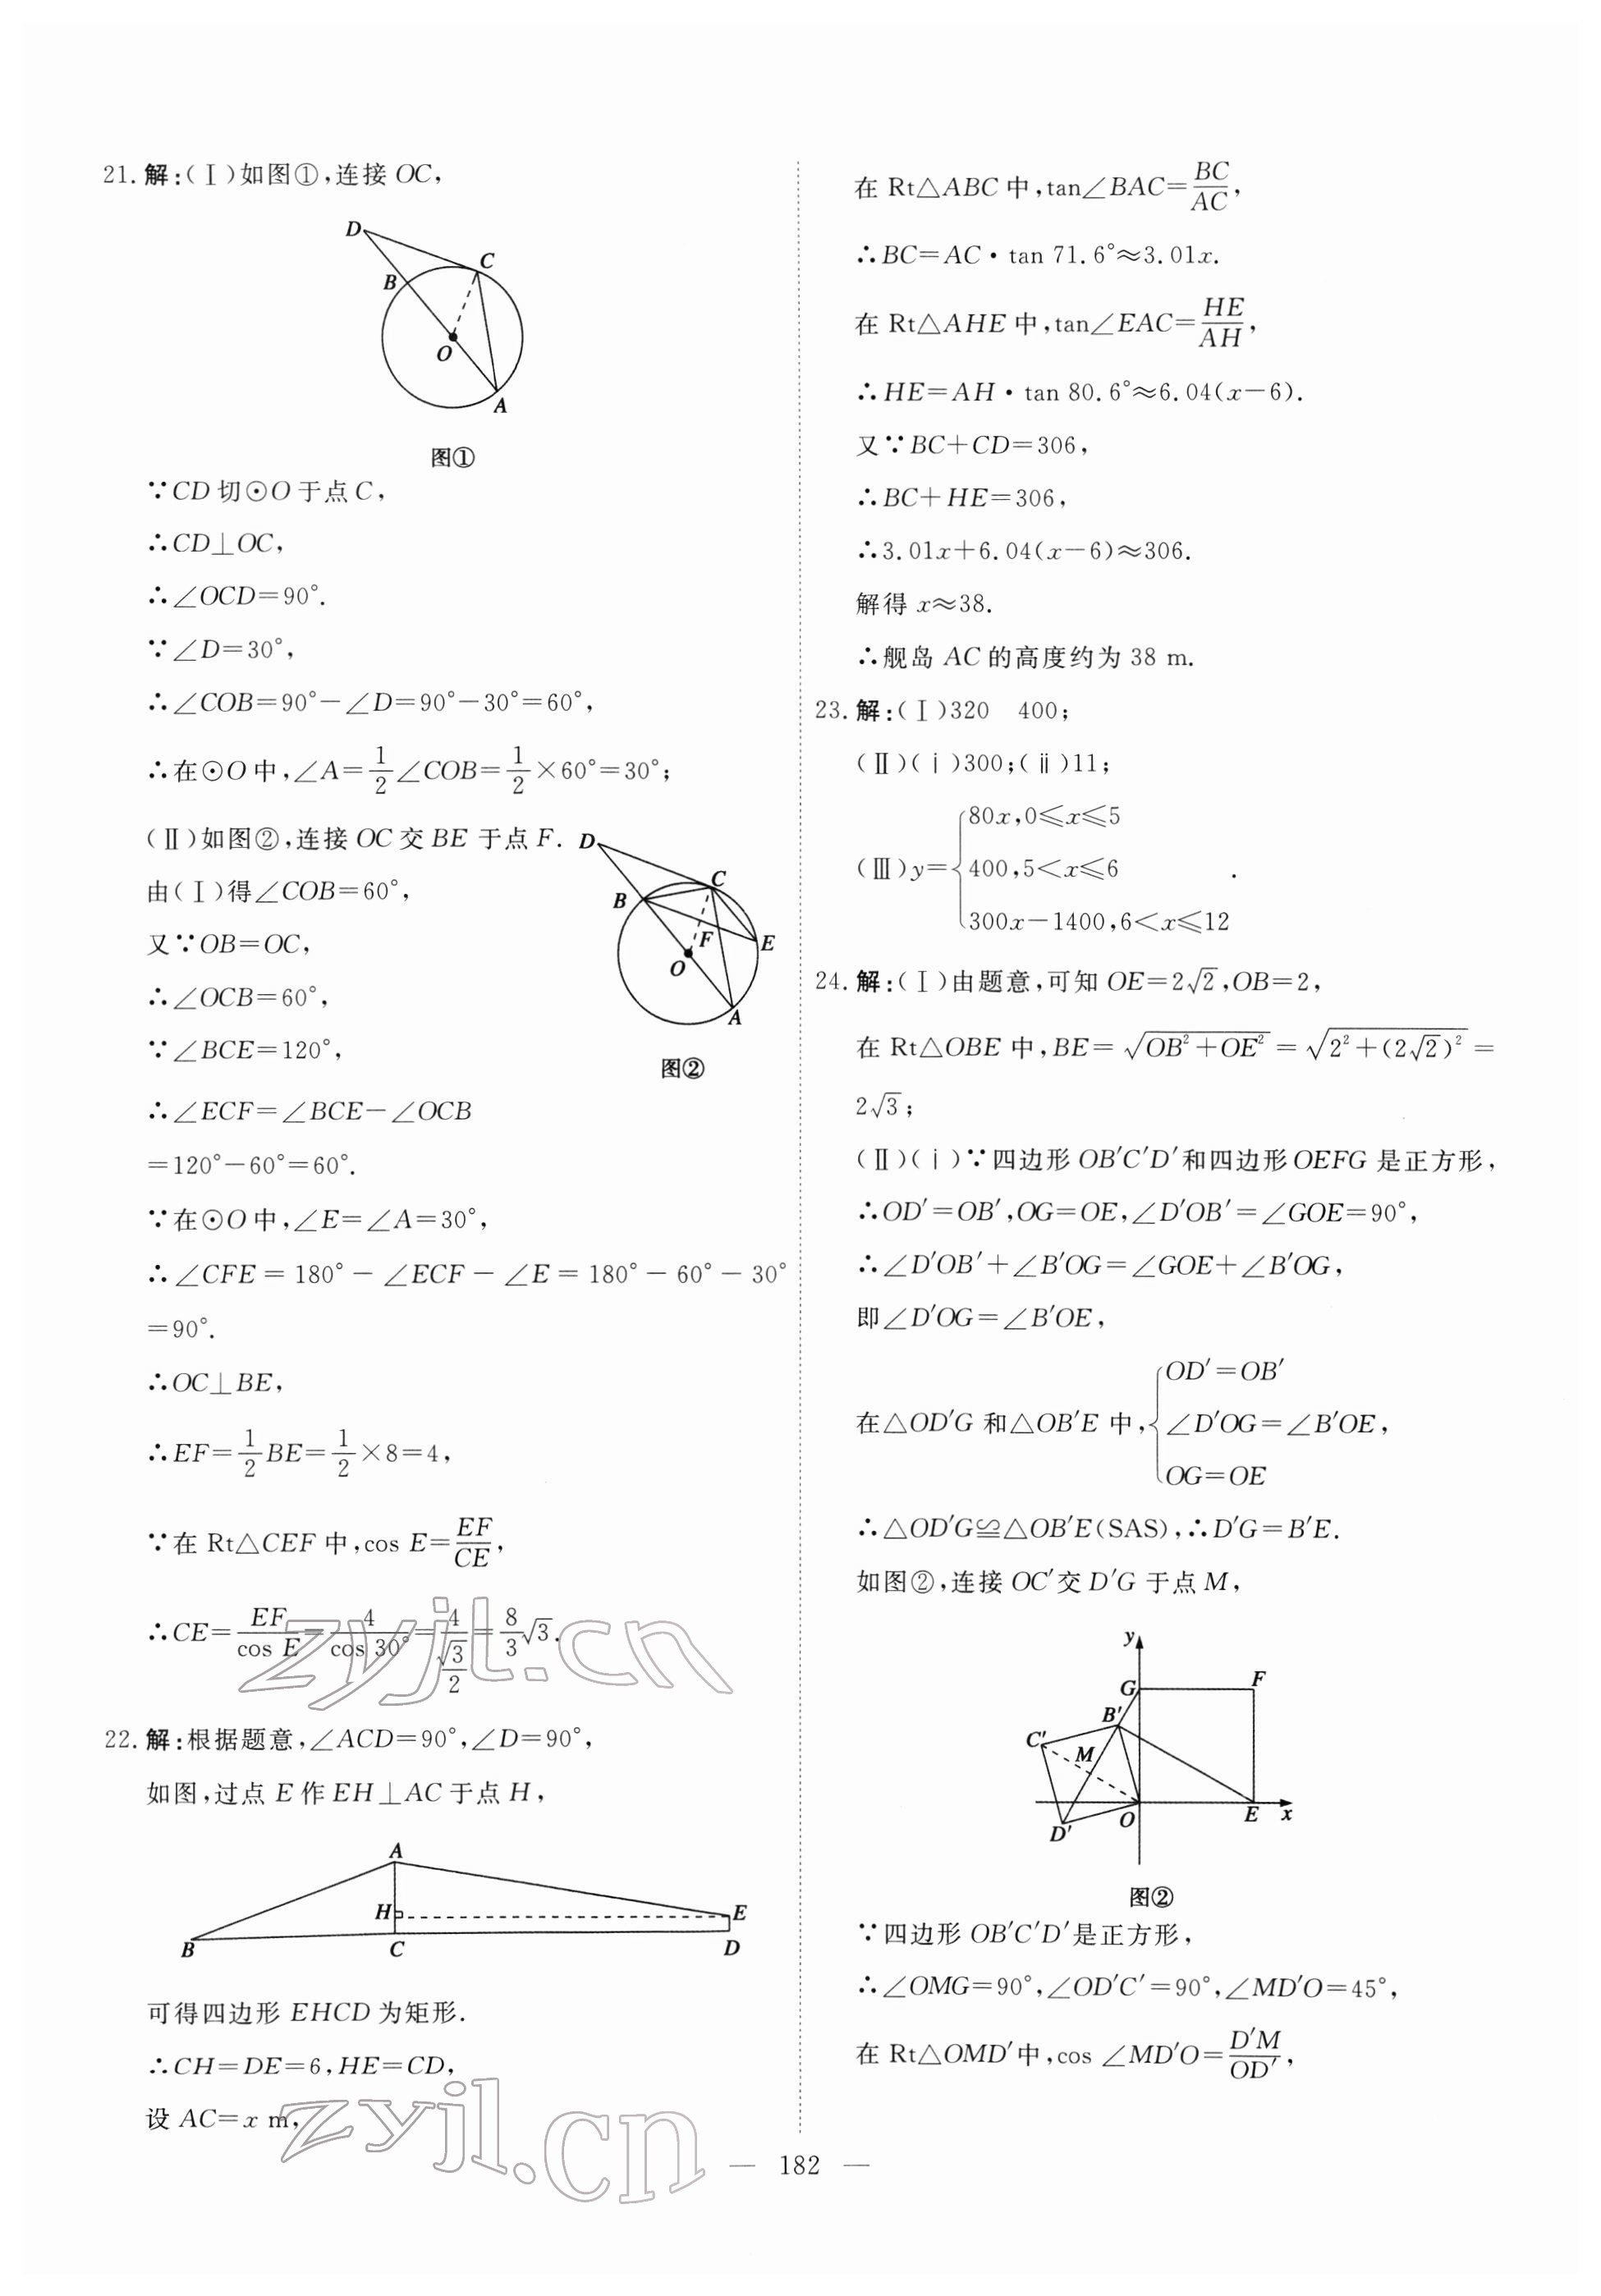 21. 解:(Ⅰ)如图①,连接 OC,
D
C
B
O
A
图①
∵CD 切⊙O 于点 C,
∴CD⊥OC,
∴∠OCD=90°.
∵∠D=30°,
∴∠COB=90°-∠D=90°-30°=60°,
∴在⊙O 中,∠A=1/2∠COB=1/2×60°=30°;
(Ⅱ)如图②,连接 OC 交 BE 于点 F.
由(Ⅰ)得∠COB=60°,
又∵OB=OC,
∴∠OCB=60°,
∵∠BCE=120°,
D
C
B
F
E
O
A
图②
∴∠ECF=∠BCE-∠OCB
=120°-60°=60°.
∵在⊙O 中,∠E=∠A=30°,
∴∠CFE=180°-∠ECF-∠E=180°-60°-30°
=90°.
∴OC⊥BE,
∴EF=1/2BE=1/2×8=4,
∵在 Rt△CEF 中,cos E=EF/CE,
∴CE=EF/cos E=4/cos 30°=4/(√3/2)=8/3√3.
22. 解:根据题意,∠ACD=90°,∠D=90°,
如图,过点 E 作 EH⊥AC 于点 H,
A
H
E
B
C
D
可得四边形 EHCD 为矩形.
∴CH=DE=6,HE=CD,
设 AC=x m,
在 Rt△ABC 中,tan∠BAC=BC/AC,
∴BC=AC·tan 71.6°≈3.01x.
在 Rt△AHE 中,tan∠EAC=HE/AH,
∴HE=AH·tan 80.6°≈6.04(x-6).
又∵BC+CD=306,
∴BC+HE=306,
∴3.01x+6.04(x-6)≈306.
解得 x≈38.
∴舰岛 AC 的高度约为 38 m.
23. 解:(Ⅰ)320 400;
(Ⅱ)(ⅰ)300;(ⅱ)11;
80x,0≤x≤5
(Ⅲ)y={400,5<x≤6 .
300x-1400,6<x≤12
24. 解:(Ⅰ)由题意,可知 OE=2√2,OB=2,
在 Rt△OBE 中,BE=√(OB²+OE²)=√(2²+(2√2)²)=
2√3;
(Ⅱ)(ⅰ)∵四边形 OB′C′D′和四边形 OEFG 是正方形,
∴OD′=OB′,OG=OE,∠D′OB′=∠GOE=90°,
∴∠D′OB′+∠B′OG=∠GOE+∠B′OG,
即∠D′OG=∠B′OE,
OD′=OB′
在△OD′G 和△OB′E 中,{∠D′OG=∠B′OE,
OG=OE
∴△OD′G≌△OB′E(SAS),∴D′G=B′E.
如图②,连接 OC′交 D′G 于点 M,
y
G
F
B′
C′
M
O
E
x
D′
图②
∵四边形 OB′C′D′是正方形,
∴∠OMG=90°,∠OD′C′=90°,∠MD′O=45°,
在 Rt△OMD′中,cos ∠MD′O=D′M/OD′,
— 182 —
zyjl.cn
zyjl.cn